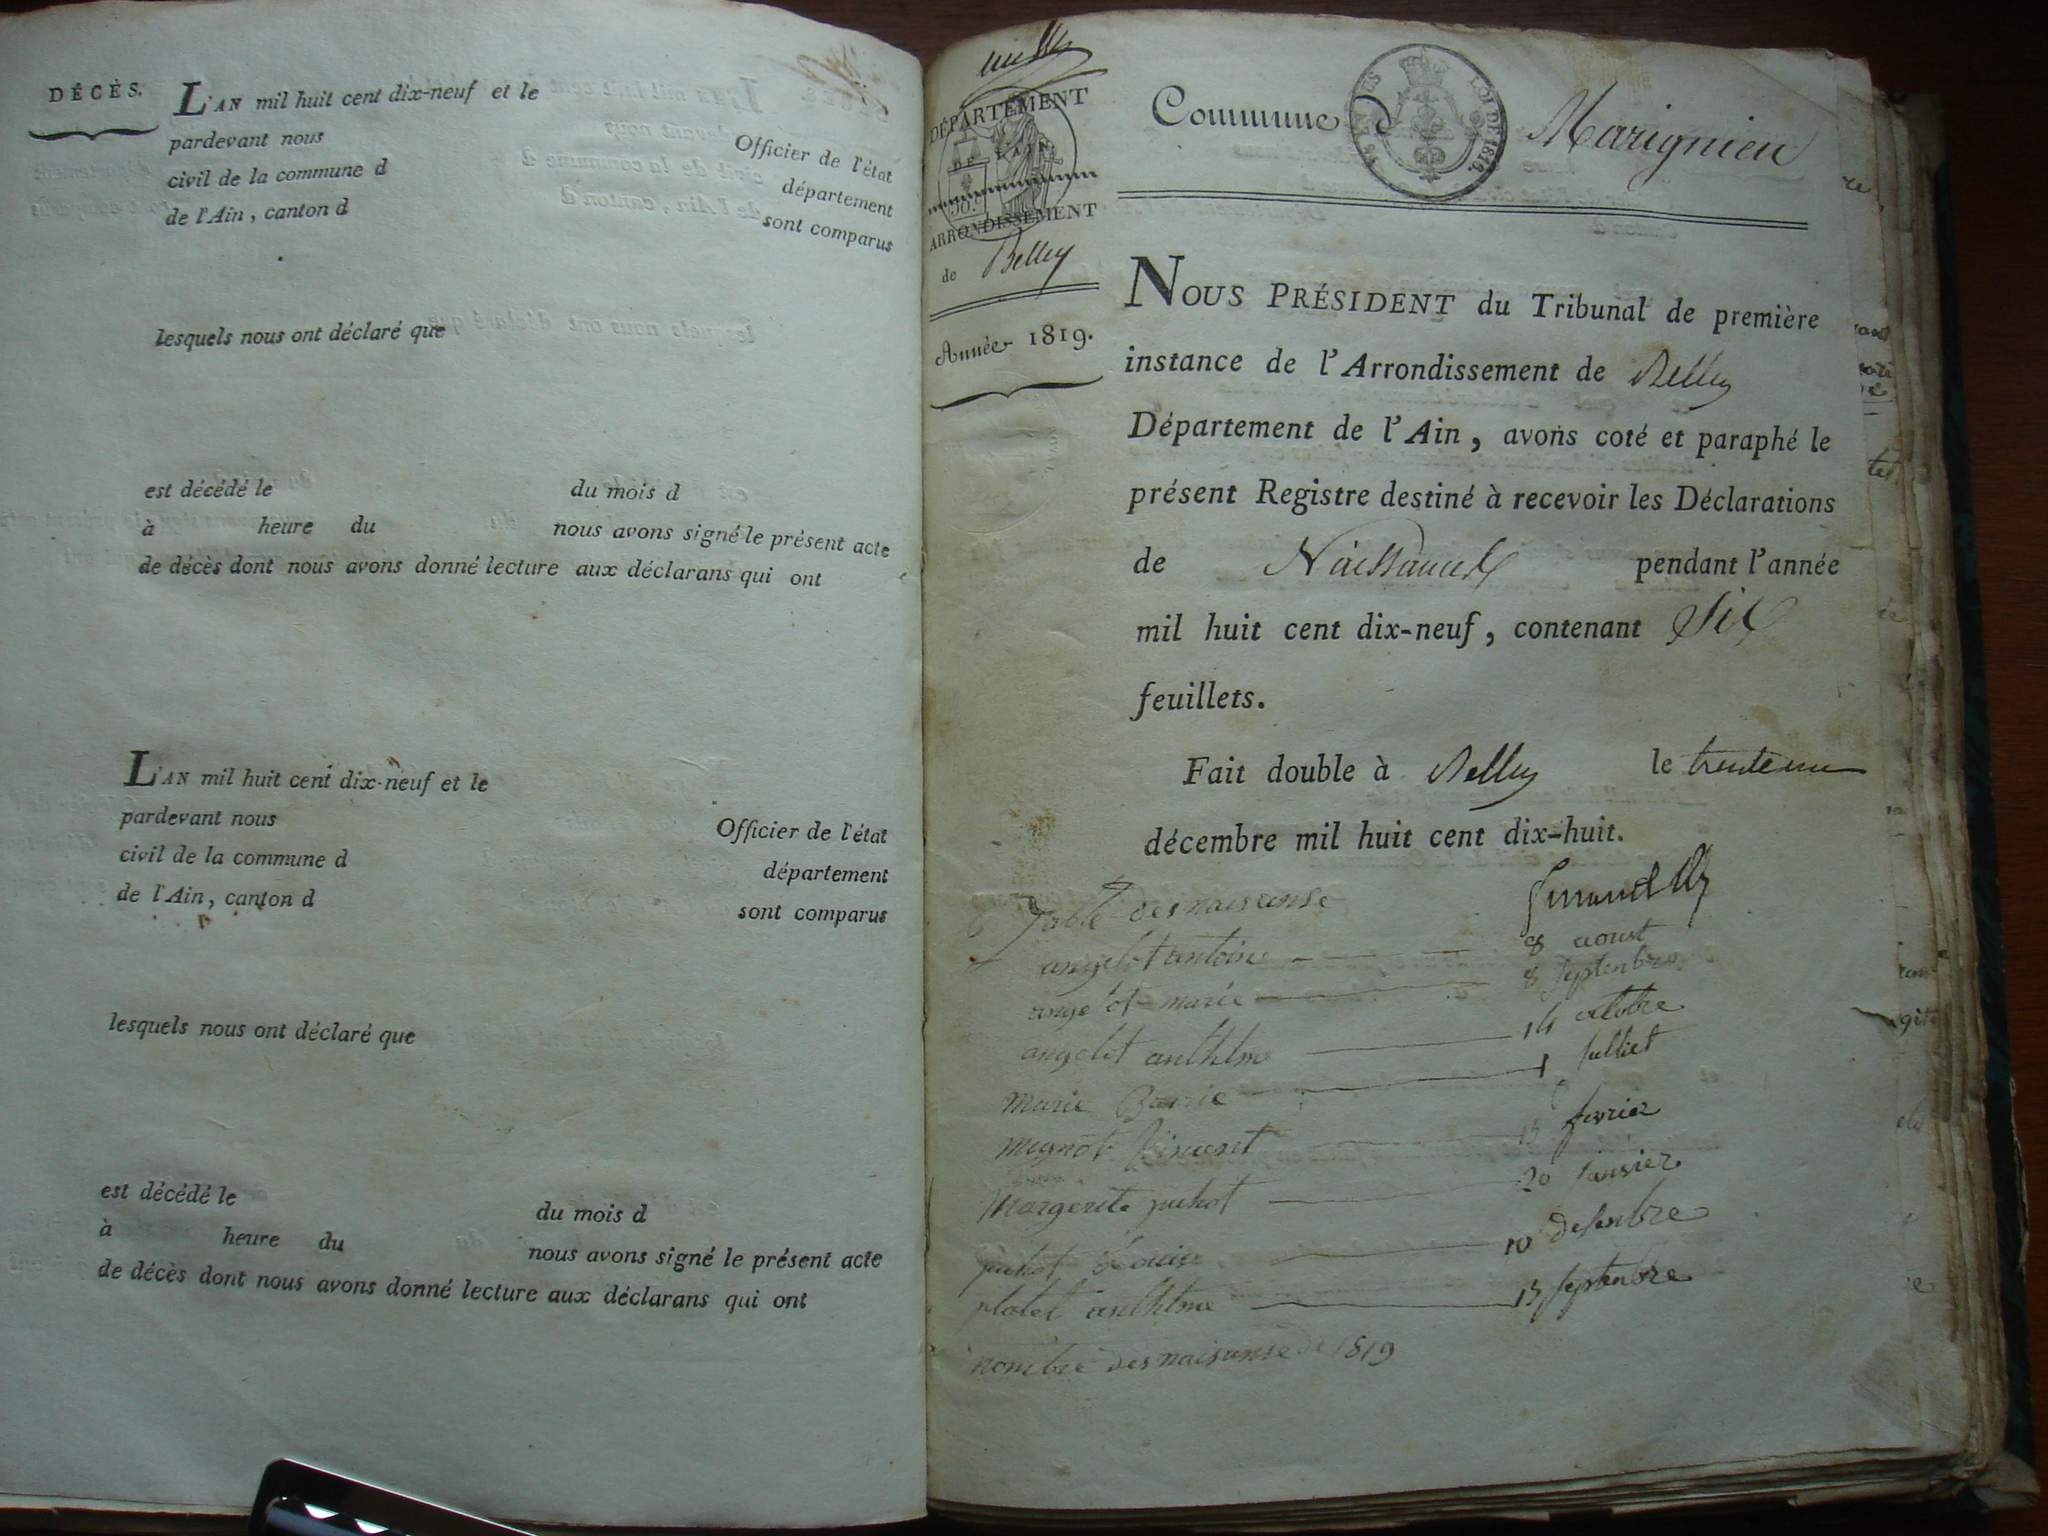 DÉCÈS.
L'AN mil huit cent dix-neuf et le
pardevant nous
Officier de l'état
civil de la commune d
département
de l'Ain, canton d
sont comparus
lesquels nous ont déclaré que
est décédé le du mois d
à heure du nous avons signé le présent acte
de décès dont nous avons donné lecture aux déclarans qui ont
L'AN mil huit cent dix-neuf et le
pardevant nous
Officier de l'état
civil de la commune d
département
de l'Ain, canton d
sont comparus
lesquels nous ont déclaré que
est décédé le du mois d
à heure du nous avons signé le présent acte
de décès dont nous avons donné lecture aux déclarans qui ont
DÉPARTEMENT
DE L'AIN
ARRONDISSEMENT
de Belley
Année 1819.
Commune d Marignieu
LOI DE 1816.
NOUS PRÉSIDENT du Tribunal de première
instance de l'Arrondissement de Belley
Département de l'Ain, avons coté et paraphé le
présent Registre destiné à recevoir les Déclarations
de Naissances pendant l'année
mil huit cent dix-neuf, contenant Six
feuillets.
Fait double à Belley le trente un
décembre mil huit cent dix-huit.
Table des naisanse
angelot antoine 8 aoust
angelot marie 8 septenbre
angelot anthlme 14 octobre
marie 1 Julliet
mignot Vincent 15 fevrier
Margerite juhot 20 Janvier
juhot Louise 10 desenbre
platet anthlme 15 septenbre
nombre des naisanse de 1819